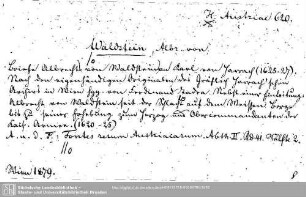 H. Austriac 620.
Waldstein, Albr. von.
Briefe Albrechts von Waldstein an Karl von Harrach (1625-27).
Nach den eigenhändigen Originalen des Gräflich Harrach'schen
Archivs in Wien hgg. von Ferdinand Mit einer Einleitung:
Albrecht von Waldstein seit der Schlacht auf dem Weissen Berge
bis zu seiner Erhebung zum Herzog und Obercommandanten der
Kais. Armee. (1620-25)
A. u. d. T. Fontes rerum Austriacarum. Abth. II. Bd 41. Hälfte 2.
Wien 1879. 8